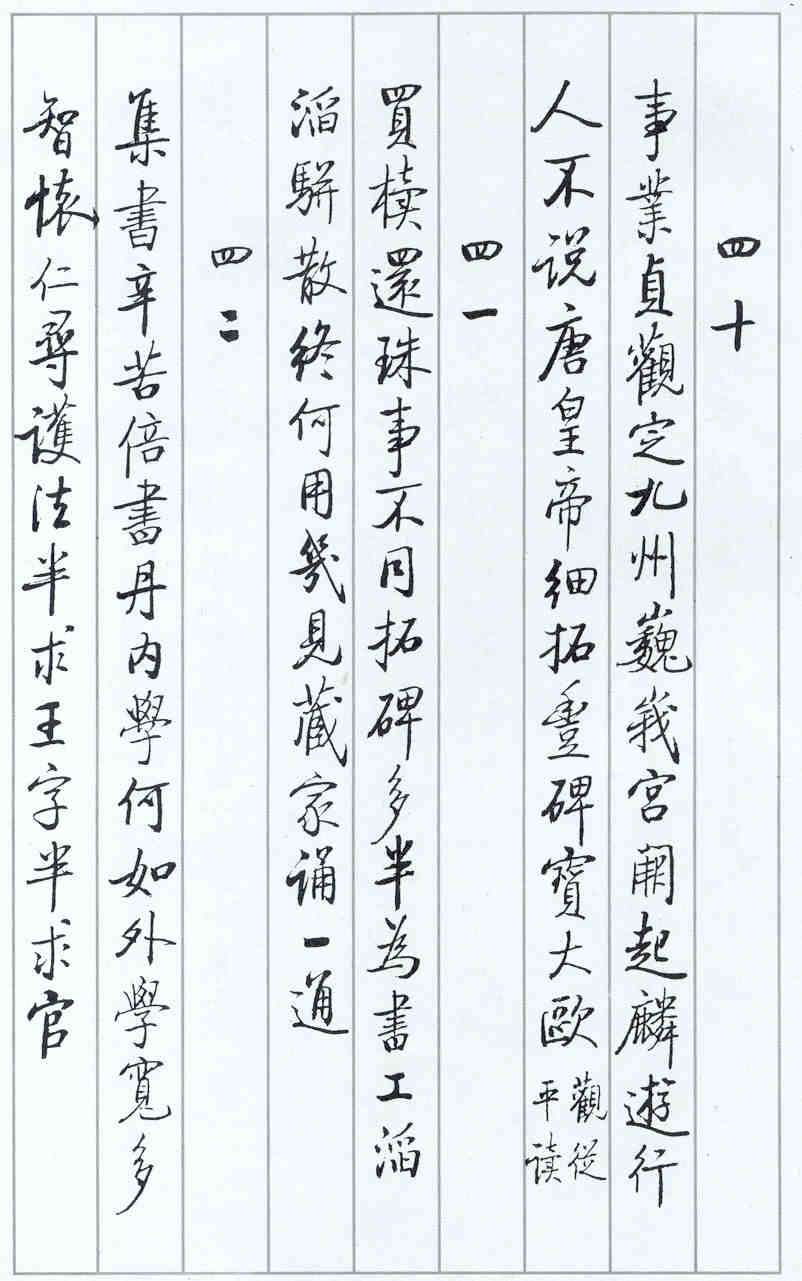 四十
事業貞觀定九州巍峩宮闕起麟遊行
人不说唐皇帝細拓豊碑寶大歐觀從平读
四一
買櫝還珠事不同拓碑多半為書工滔
滔駢散終何用幾見藏家誦一通
四二
集書辛苦倍書丹内學何如外學寬多
智懷仁尋護法半求王字半求官